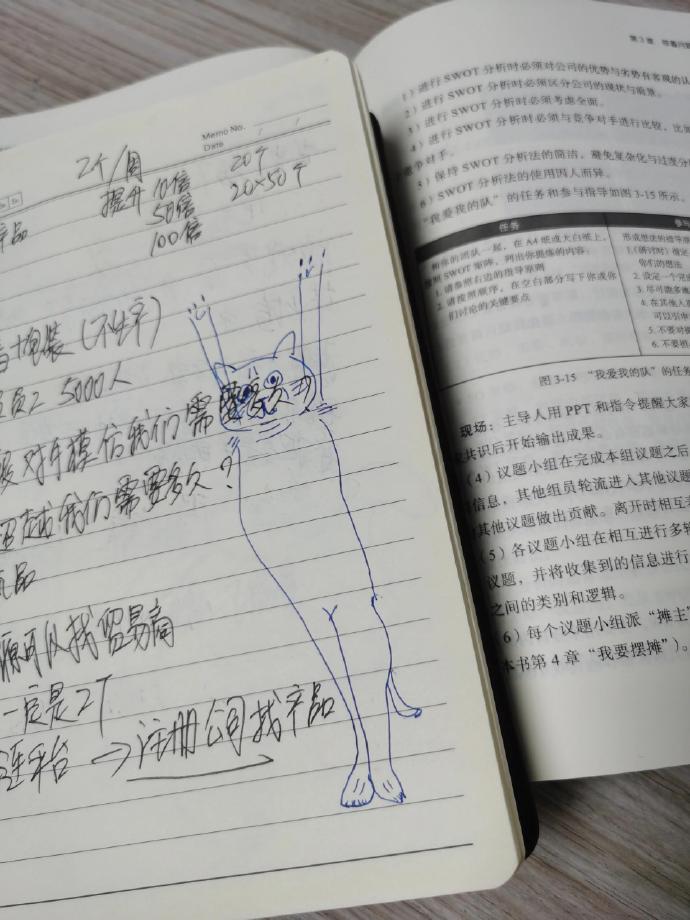 Memo No.
Date
2个/周
20个
提升 10倍
20×50个
50倍
100倍
产品
包装（不生产）
员工 5000人
对手模仿我们需要多久
超越我们需要多久？
品
源可以找贸易商
一定是2个
→注册公司找产品
第3章
1）进行 SWOT 分析时必须对公司的优势与劣势有客观的认
2）进行 SWOT 分析时必须区分公司的现状与前景。
3）进行 SWOT 分析时必须考虑全面。
4）进行 SWOT 分析时必须与竞争对手进行比较，比如
竞争对手。
5）保持 SWOT 分析法的简洁，避免复杂化与过度分
6）SWOT 分析法的使用因人而异。
“我爱我的队”的任务和参与指导如图 3-15 所示。
任务
和你的团队一起，在 A4 纸或大白纸上，
按照 SWOT 矩阵，列出你提炼的内容：
1. 请参照右边的指导原则
2. 请按照顺序，在空白部分写下你或你
们讨论的关键要点
参与
形成想法的指导原
1.（研讨时）指定
你们的想法
2. 设定一个完成
3. 尽可能多地
4. 在其他人
可以引申
5. 不要对
6. 不要担
图 3-15 “我爱我的队”的任务
现场：主导人用 PPT 和指令提醒大家
共识后开始输出成果。
（4）议题小组在完成本组议题之后
信息，其他组员轮流进入其他议题
其他议题做出贡献。离开时相互
（5）各议题小组在相互进行多轮
议题，并将收集到的信息进行
之间的类别和逻辑。
（6）每个议题小组派“摊主”
本书第 4 章“我要摆摊”）。